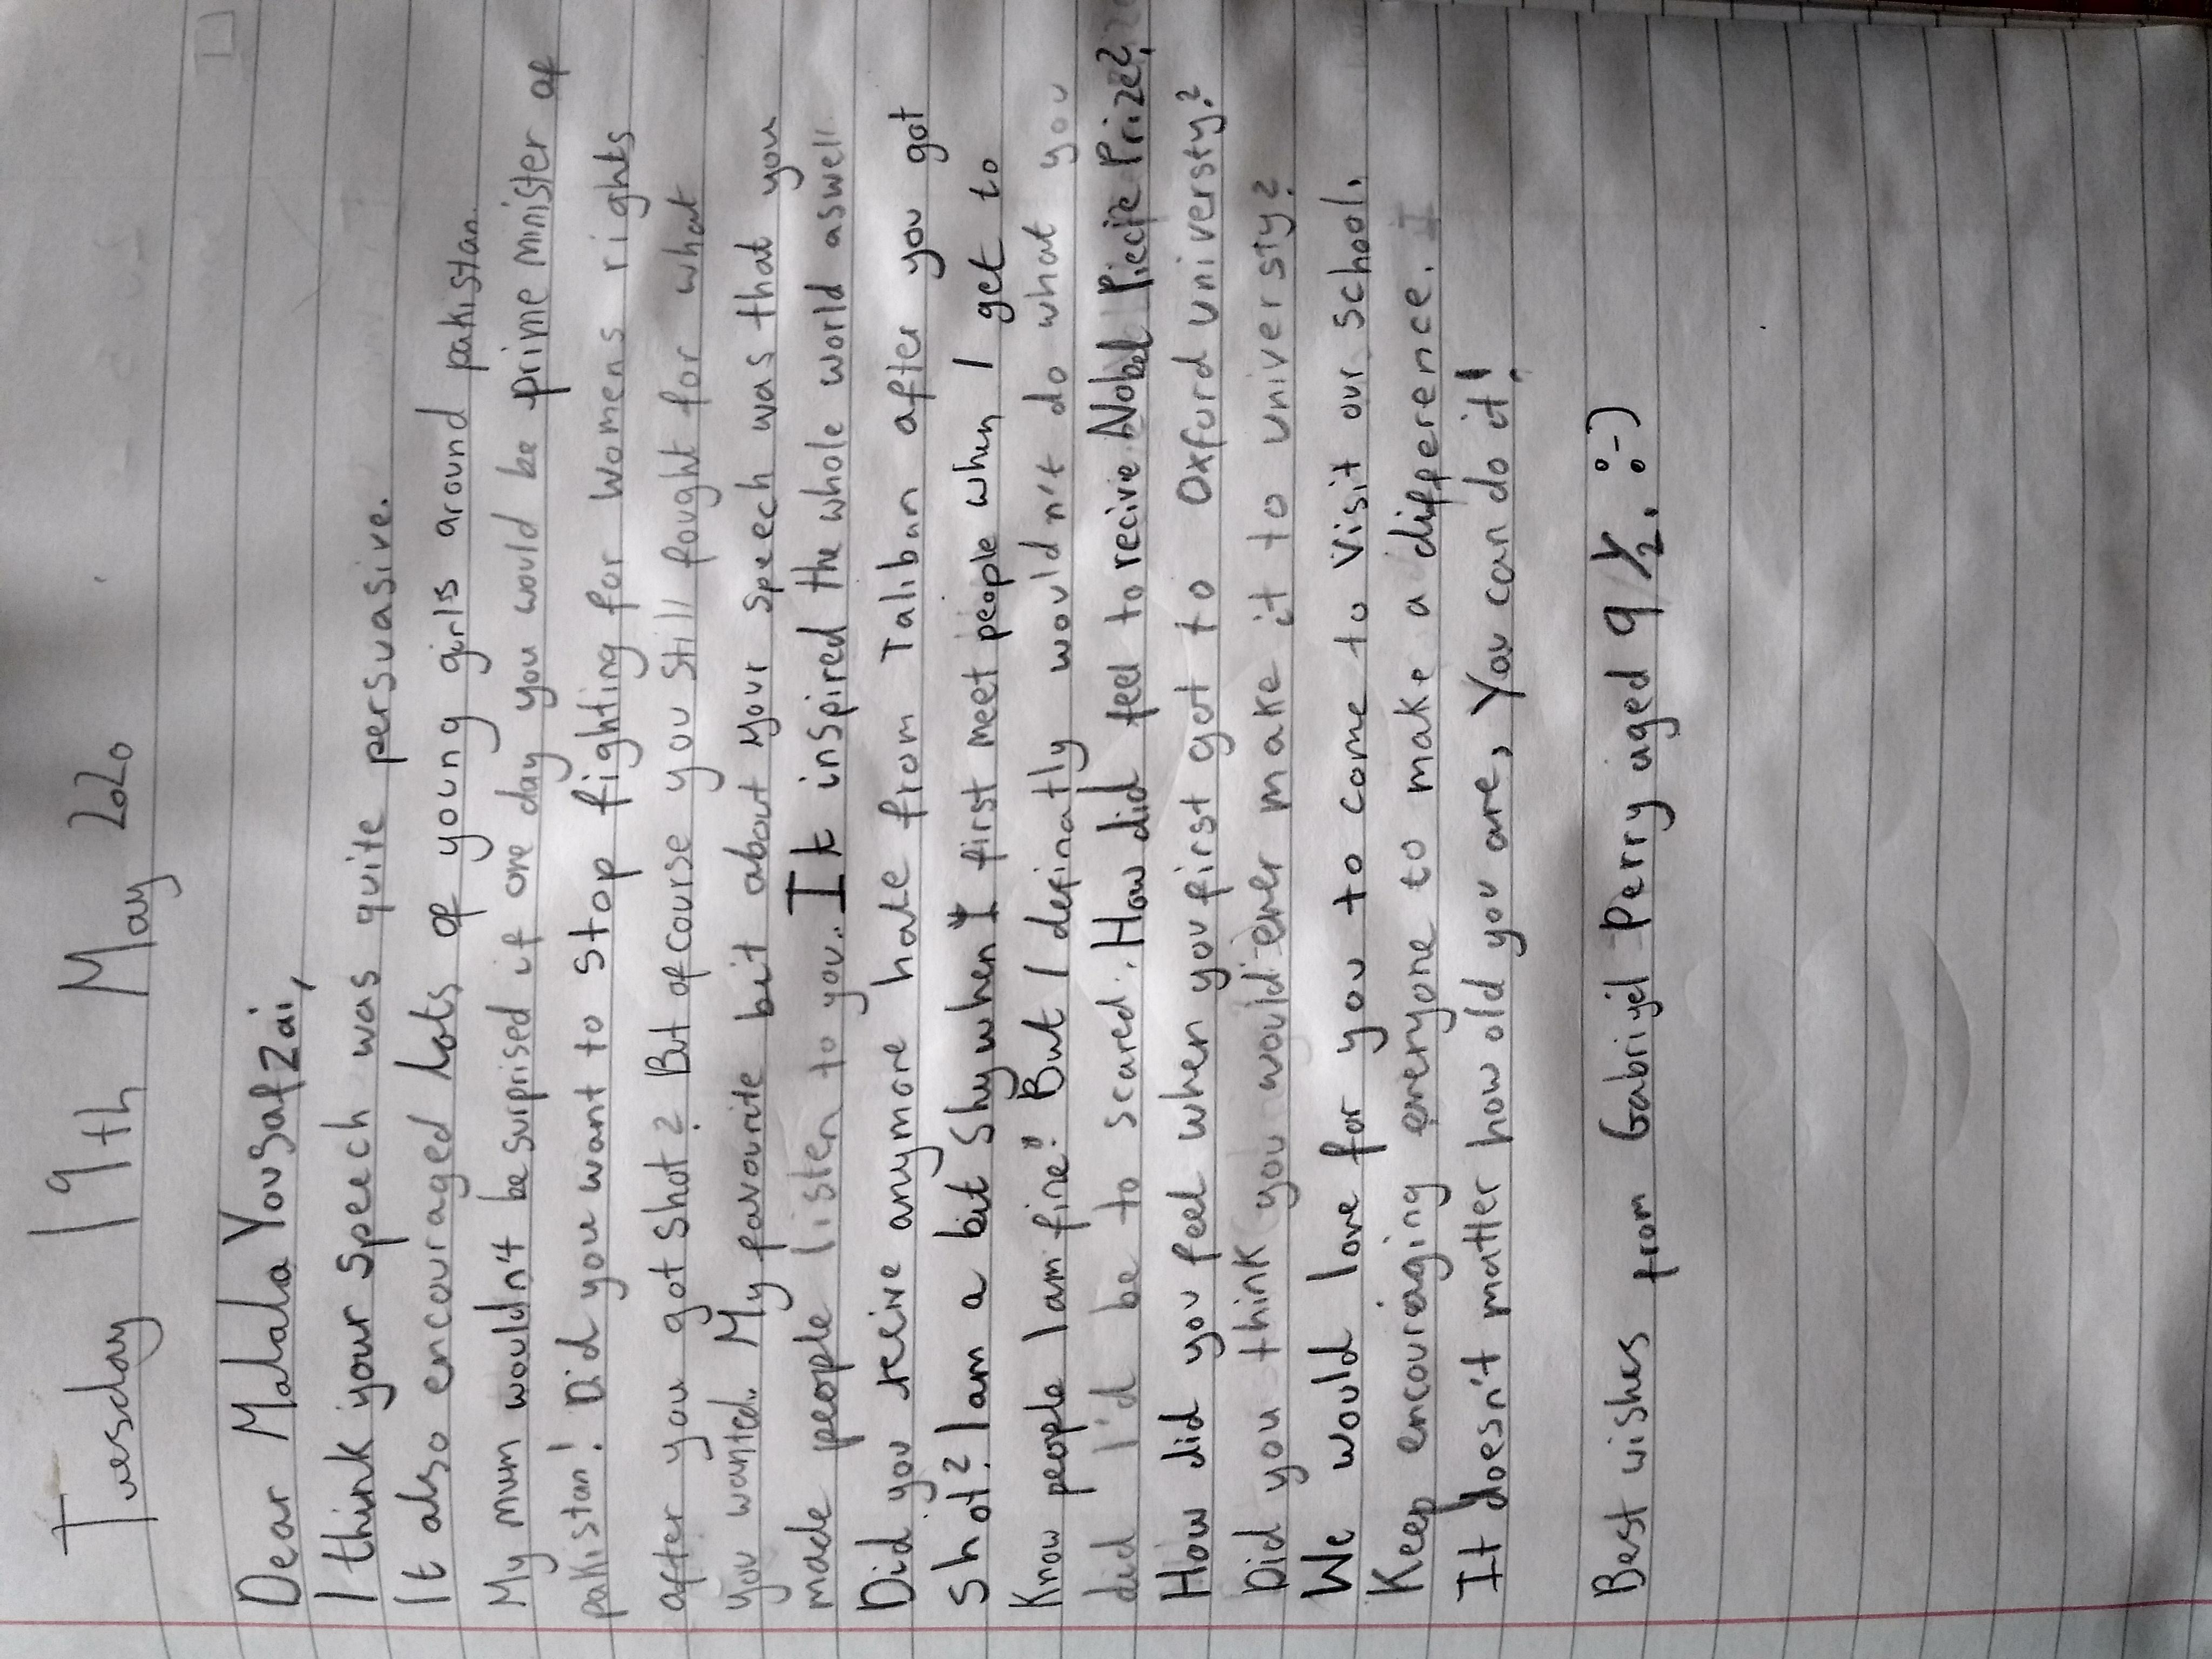 Tuesday 19th May 2020
Dear Malala Yousafzai,
I think your speech was quite persuasive.
It also encouraged lots of young girls around pakistan.
My mum wouldn't be surprised if one day you would be prime minister of
pakistan! Did you want to stop fighting for womens rights
after you got shot? But ofcourse you still fought for what
you wanted. My favourite bit about your speech was that you
made people listen to you. It inspired the whole world aswell.
Did you reeive anymore hate from Taliban after you got
shot? I am a bit shy when I first meet people when I get to
Know people I am fine! But I definatly would n't do what you
did I'd be to scared. How did feel to recive Nobel Piecfe Prize?
How did you feel when you first got to Oxfurd universty?
Did you think you would ever make it to universty?
We would love for you to come to visit our school.
Keep encouraging everyone to make a difference.
It doesn't matter how old you are, You can do it!
Best wishes from Gabriyel Perry aged 9 1/2. :-)